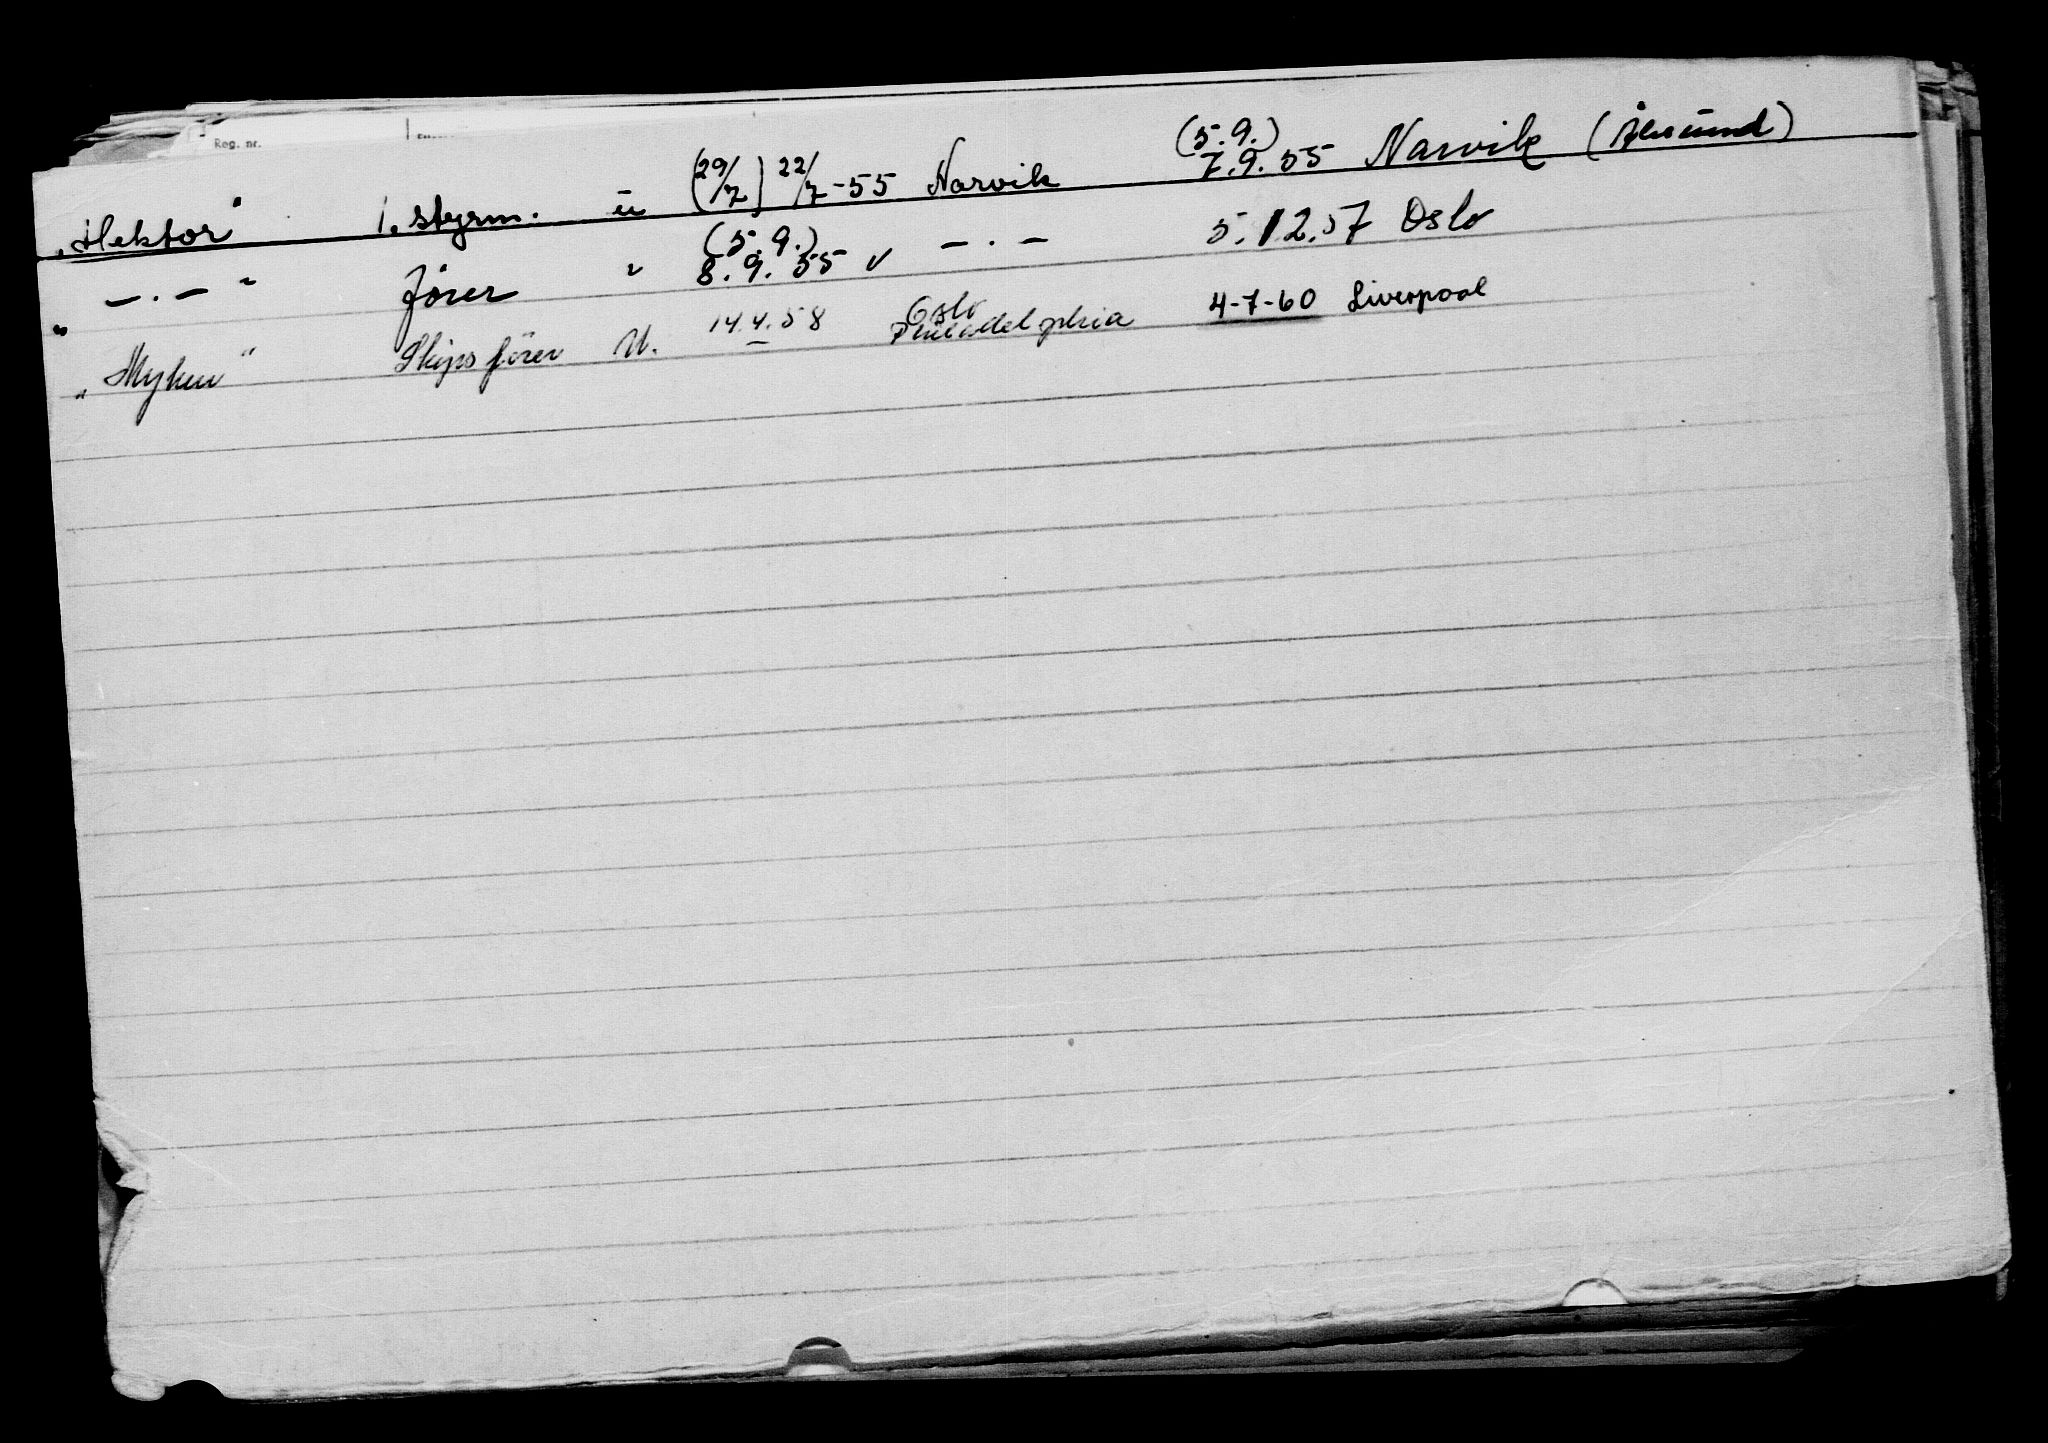 Reg. nr.
„Hektor" 1. styrm. u (29/7) 22/7-55 Narvik (5.9.) 7.9.55 Narvik (Ålesund)
„ —.— " fører " (5.9.) 8.9.55 ✓ —.— 5.12.57 Oslo
„Myken" Skipsfører U. 14.4.58 Oslo Philadelphia 4-7-60 Liverpool